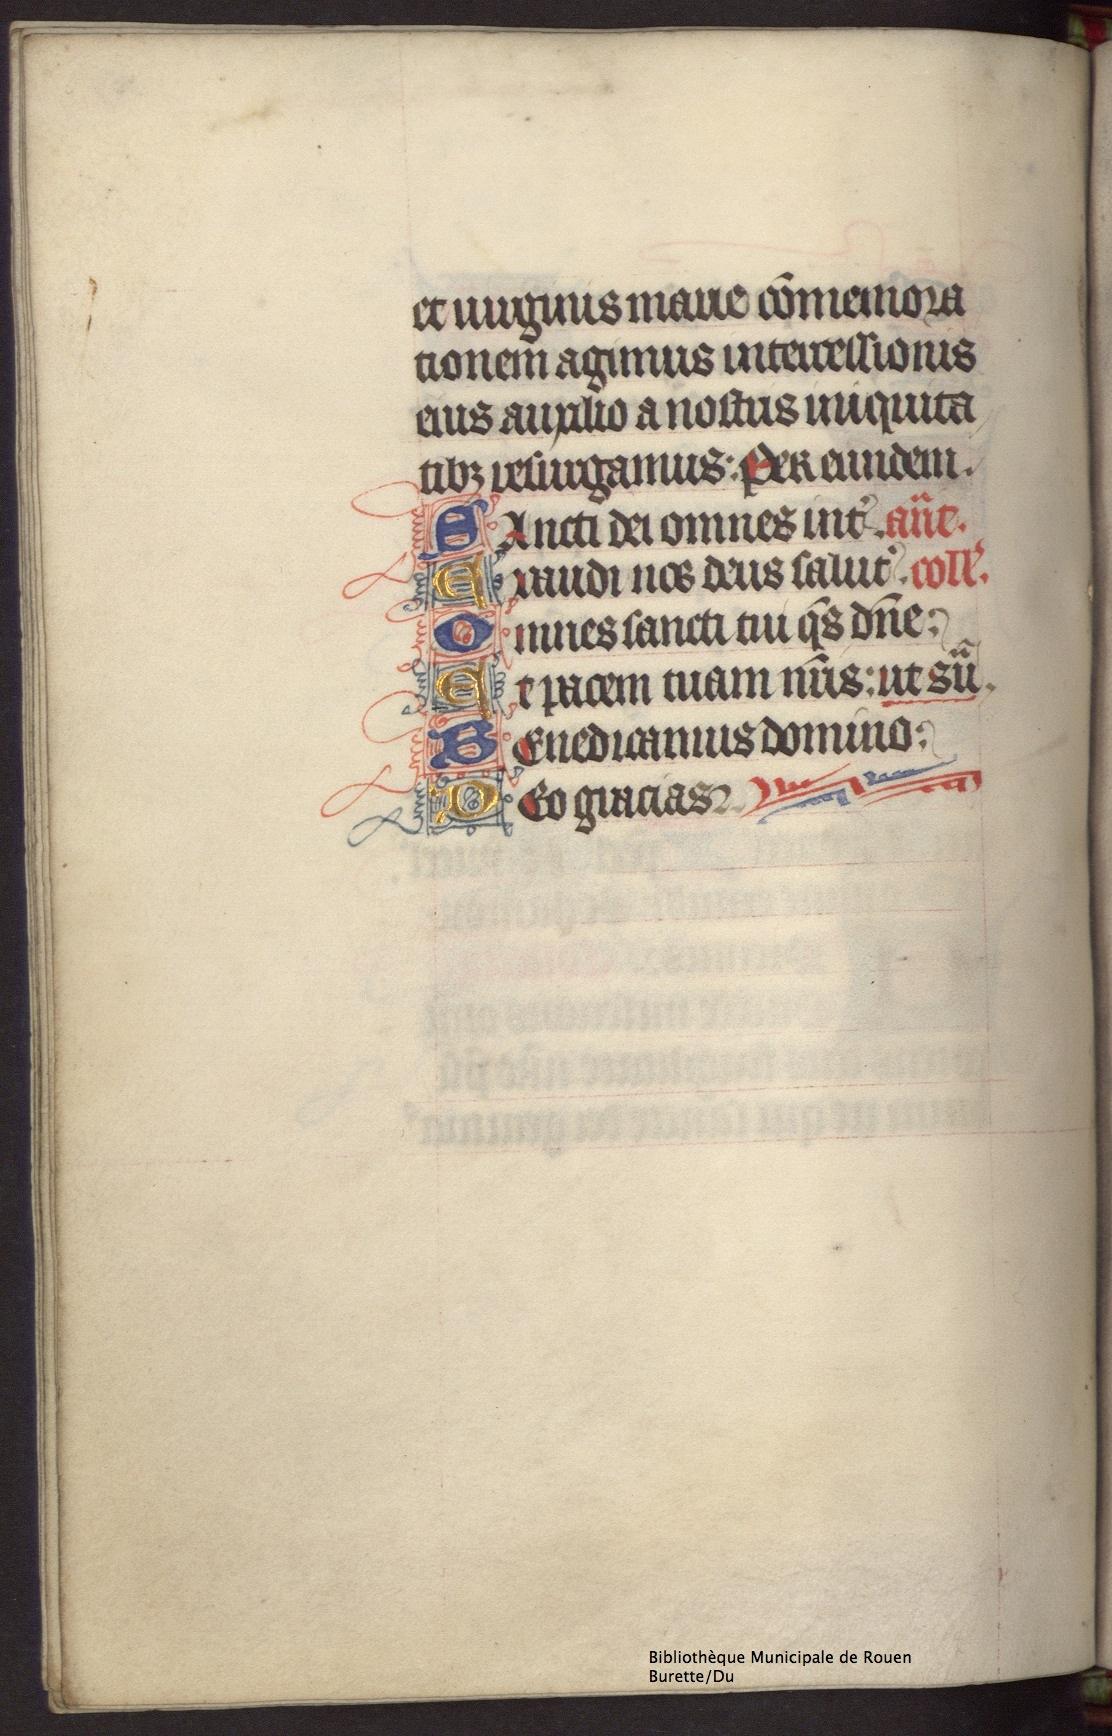 et uirginis marie co͂memora
tionem agimus intercessionis
eius auxilio a nostris iniquita
tibꝫ resurgamus: Per eundem.
SAncti dei omnes int͛. an̄e.
Exaudi nos deus salut͛. coll͛.
Omnes sancti tui qs̄ dn̄e:
Et pacem tuam nr̄is: ut sū.
BEnedicamus domino:
DEo gracias
Bibliothèque Municipale de Rouen
Burette/Du